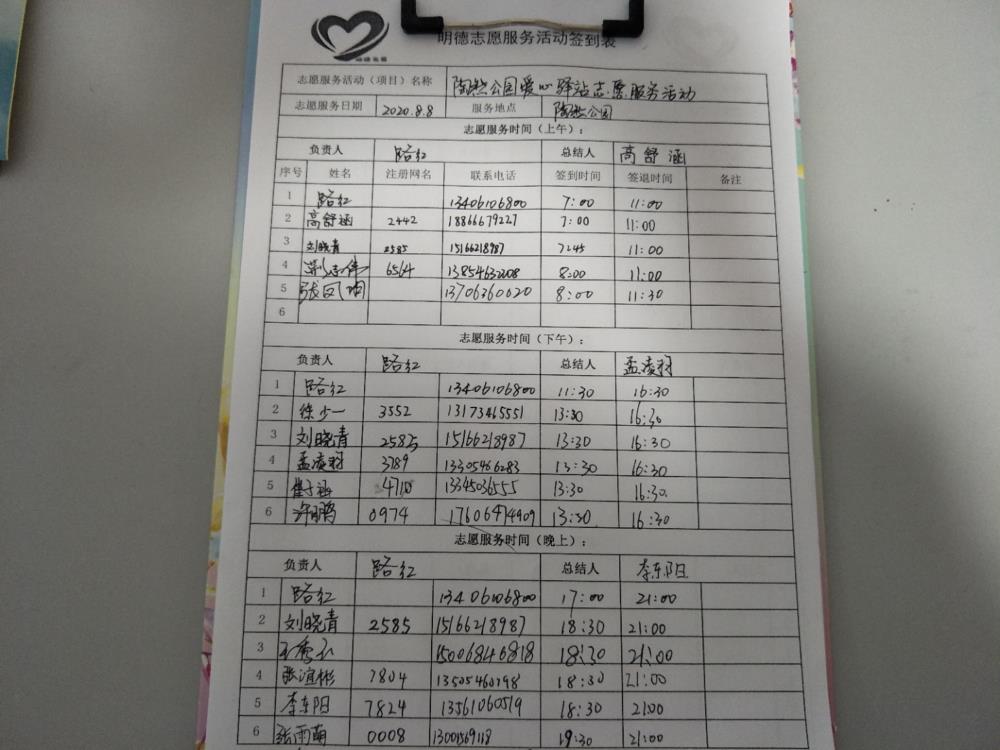 明德志愿服务活动签到表
志愿服务活动（项目）名称 陶然公园爱心驿站志愿服务活动
志愿服务日期 2020.8.8 服务地点 陶然公园
志愿服务时间（上午）：
负责人 路红 总结人 高舒涵
序号 姓名 注册网名 联系电话 签到时间 签退时间 备注
1 路红 13406106800 7:00 11:00
2 高舒涵 2442 18866679227 7:00 11:00
3 刘晓青 2585 15166218987 7:45 11:00
4 6564 13854632208 8:00 11:00
5 13706360620 8:00 11:30
6
志愿服务时间（下午）：
负责人 路红 总结人 孟凌羽
1 路红 13406106800 11:30 16:30
2 徐少一 3552 13173465551 13:30 16:30
3 刘晓青 2585 15166218987 13:30 16:30
4 孟凌羽 3789 13305466283 13:30 16:30
5 13345036555 13:30 16:30
6 许鹏 0974 17606414909 13:30 16:30
志愿服务时间（晚上）：
负责人 路红 总结人 李东阳
1 路红 13406106800 17:00 21:00
2 刘晓青 2585 15166218987 18:30 21:00
3 15006846818 18:30 21:00
4 张谊彬 7804 13505460798 18:30 21:00
5 李东阳 7824 13561060519 18:30 21:00
6 张雨萌 0008 13001569118 19:30 21:00